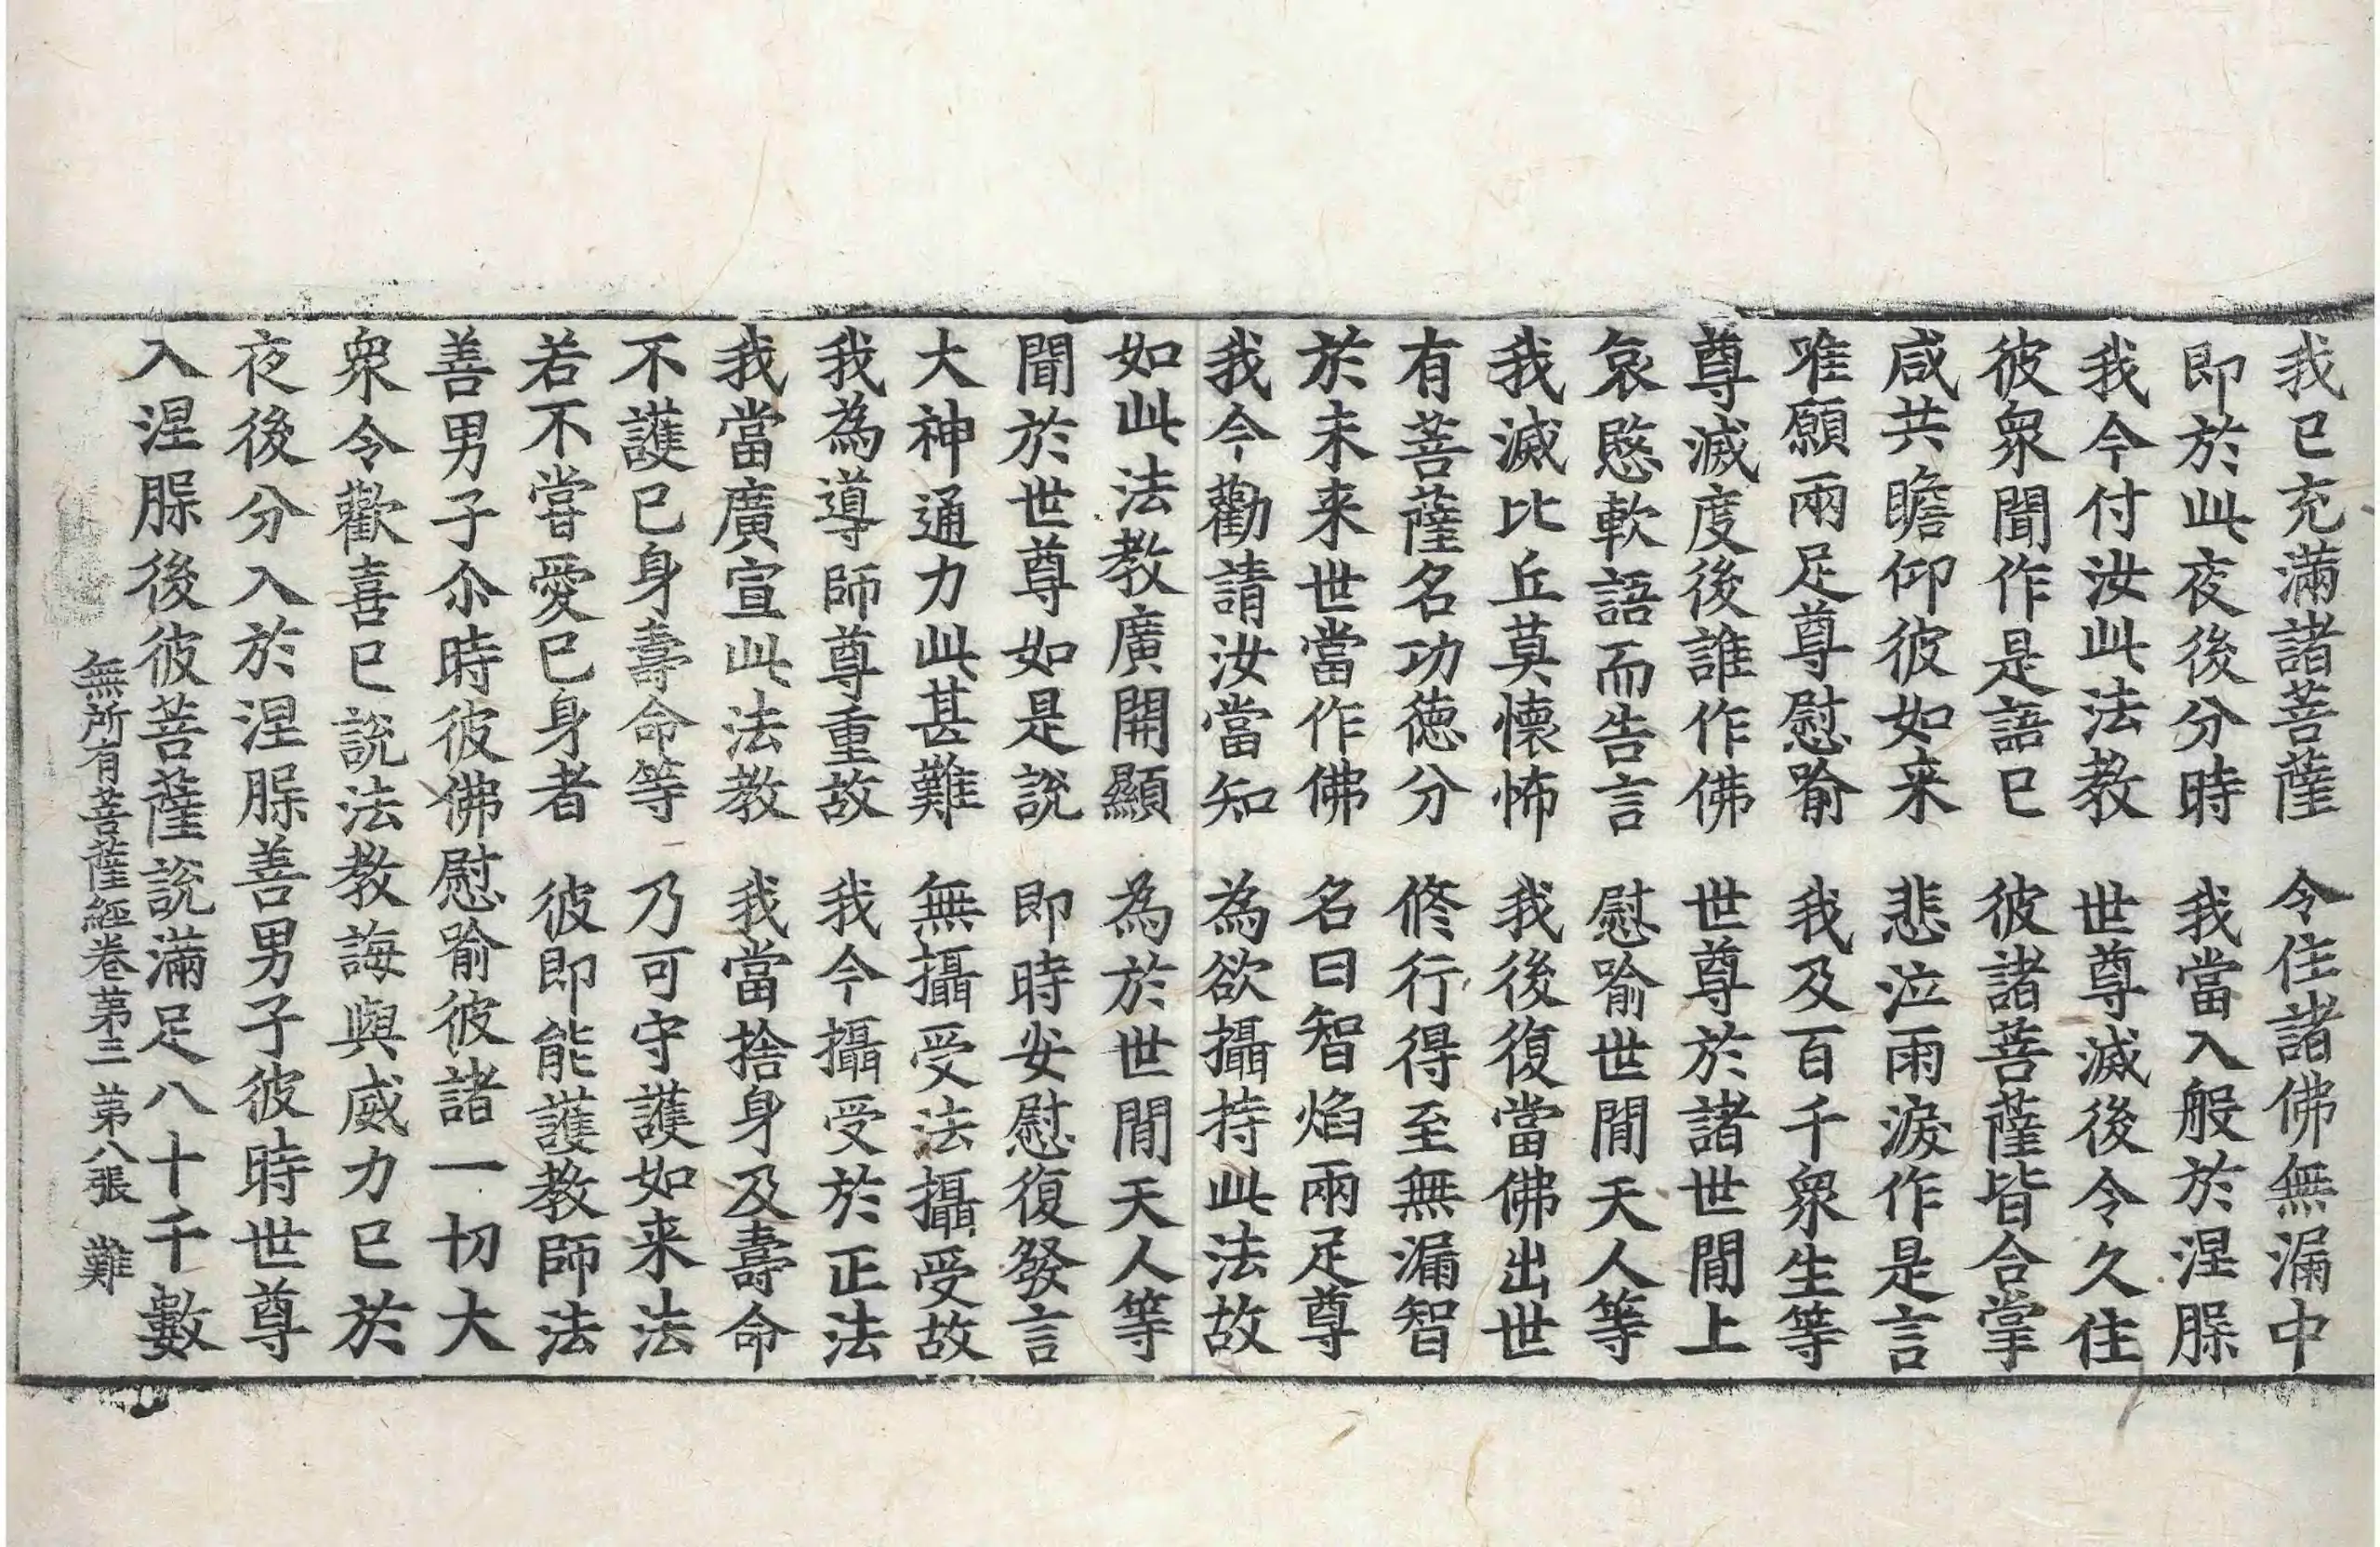 我已充滿諸菩薩　令住諸佛無漏中
即於此夜後分時　我當入般於涅脲
我今付汝此法教　世尊滅後令久住
彼衆聞作是語已　彼諸菩薩皆合掌
咸共瞻仰彼如来　悲泣雨淚作是言
唯願兩足尊慰喻　我及百千衆生等
尊滅度後誰作佛　世尊於諸世間上
哀愍軟語而告言　慰喻世間天人等
我滅比丘莫懷怖　我後復當佛出世
有菩薩名功徳分　修行得至無漏智
於未来世當作佛　名曰智焰兩足尊
我今勸請汝當知　為欲攝持此法故
如此法教廣開顯　為於世間天人等
聞於世尊如是說　即時安慰復發言
大神通力此甚難　無攝受法攝受故
我為導師尊重故　我今攝受於正法
我當廣宣此法教　我當捨身及壽命
不護已身壽命等　乃可守護如来法
若不嘗愛已身者　彼即能護教師法
善男子尒時彼佛慰喻彼諸一切大
衆令歡喜已說法教誨與威力已於
夜後分入於涅脲善男子彼時世尊
入涅脲後彼菩薩說滿足八十千數
無所有菩薩經卷第三　第八張　難